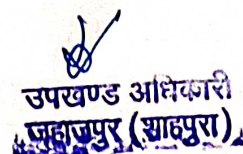 उपखण्ड अधिकारी
जहाजपुर (शाहपुरा)